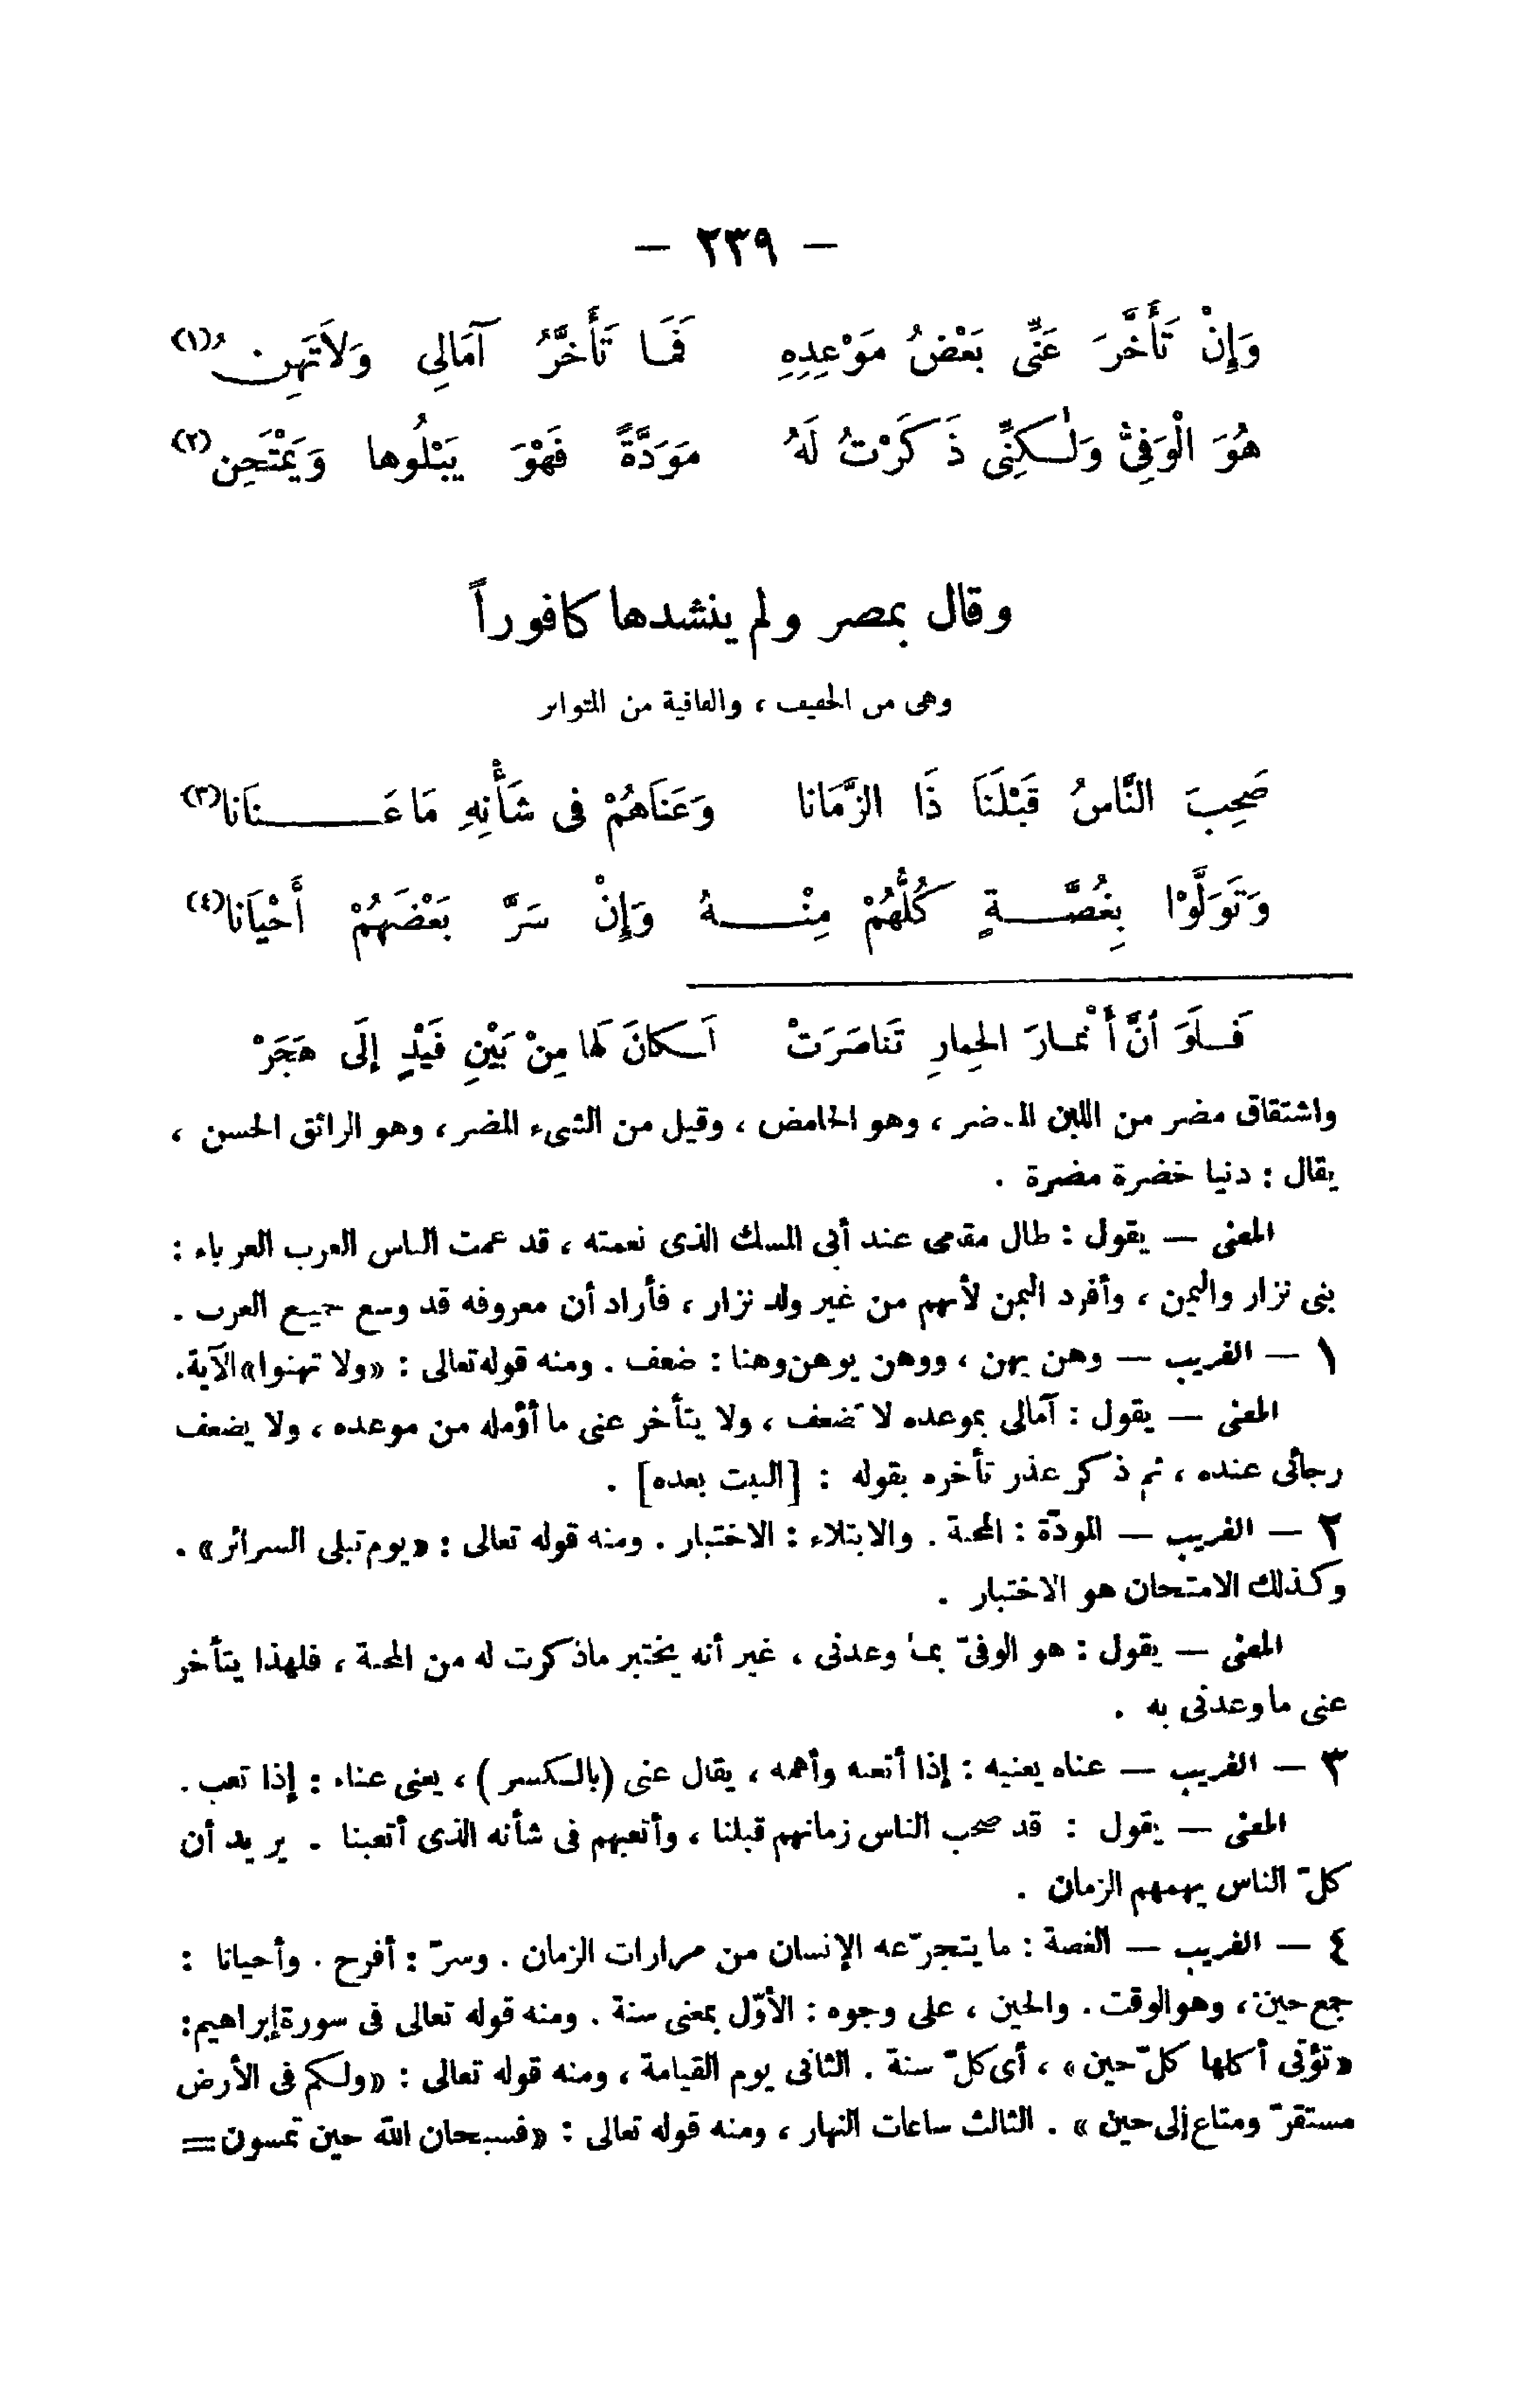 — ٢٣٩ —
وَإِنْ تَأَخَّرَ عَنِّى بَعْضُ مَوْعِدِهِ فَمَا تَأَخَّرُ آمَالِى وَلاَ تَهِنُ (١)
هُوَ الْوَفِىُّ وَلٰكِنِّى ذَكَرْتُ لَهُ مَوَدَّةً فَهْوَ يَبْلُوها وَيَمْتَحِنُ (٢)
وقال بمصر ولم ينشدها كافوراً
وهى من الخفيف ، والقافية من المتواتر
صَحِبَ النَّاسُ قَبْلَنَا ذَا الزَّمَانا وَعَنَاهُمْ فى شَأْنِهِ مَا عَنَانا (٣)
وَتَوَلَّوْا بِغُصَّةٍ كُلُّهُمْ مِنْهُ وَإِنْ سَرَّ بَعْضَهُمْ أَحْيَانا (٤)
فَلَوَ أنَّ أَنْمارَ الحِمارِ تَناصَرَتْ لَكانَ لَها مِنْ بَيْنِ فَيْدٍ إلَى هَجَرْ
واشتقاق مضر من اللبن المضر ، وهو الحامض ، وقيل من الشىء المضر ، وهو الرائق الحسن ،
يقال : دنيا خضرة مضرة .
المعنى — يقول : طال مقامى عند أبى المسك الذى نعمته ، قد عمت الناس العرب العرباء :
بنى نزار واليمن ، وأفرد اليمن لأنهم من غير ولد نزار ، فأراد أن معروفه قد وسع جميع العرب .
١ — الغريب — وهن يهن ، ووهن يوهن وهنا : ضعف . ومنه قوله تعالى : «ولا تهنوا» الآية.
المعنى — يقول : آمالى بموعده لا تضعف ، ولا يتأخر عنى ما أؤمله من موعده ، ولا يضعف
رجائى عنده ، ثم ذكر عذر تأخره بقوله : [البيت بعده] .
٢ — الغريب — المودّة : المحبة . والابتلاء : الاختبار . ومنه قوله تعالى : «يوم تبلى السرائر» .
وكذلك الامتحان هو الاختبار .
المعنى — يقول : هو الوفىّ بما وعدنى ، غير أنه يختبر ماذكرت له من المحبة ، فلهذا يتأخر
عنى ما وعدنى به .
٣ — الغريب — عناه يعنيه : إذا أتعبه وأهمه ، يقال عنى (بالكسر) ، يعنى عناء : إذا تعب .
المعنى — يقول : قد صحب الناس زمانهم قبلنا ، وأتعبهم فى شأنه الذى أتعبنا . يريد أن
كلّ الناس يهمهم الزمان .
٤ — الغريب — الغصة : ما يتجرّعه الإنسان من مرارات الزمان . وسرّ : أفرح . وأحيانا :
جمع حين ، وهو الوقت . والحين ، على وجوه : الأوّل بمعنى سنة . ومنه قوله تعالى فى سورة إبراهيم:
«تؤتى أكلها كلّ حين» ، أى كلّ سنة . الثانى يوم القيامة ، ومنه قوله تعالى : «ولكم فى الأرض
مستقرّ ومتاع إلى حين » . الثالث ساعات النهار ، ومنه قوله تعالى : «فسبحان الله حين تمسون =